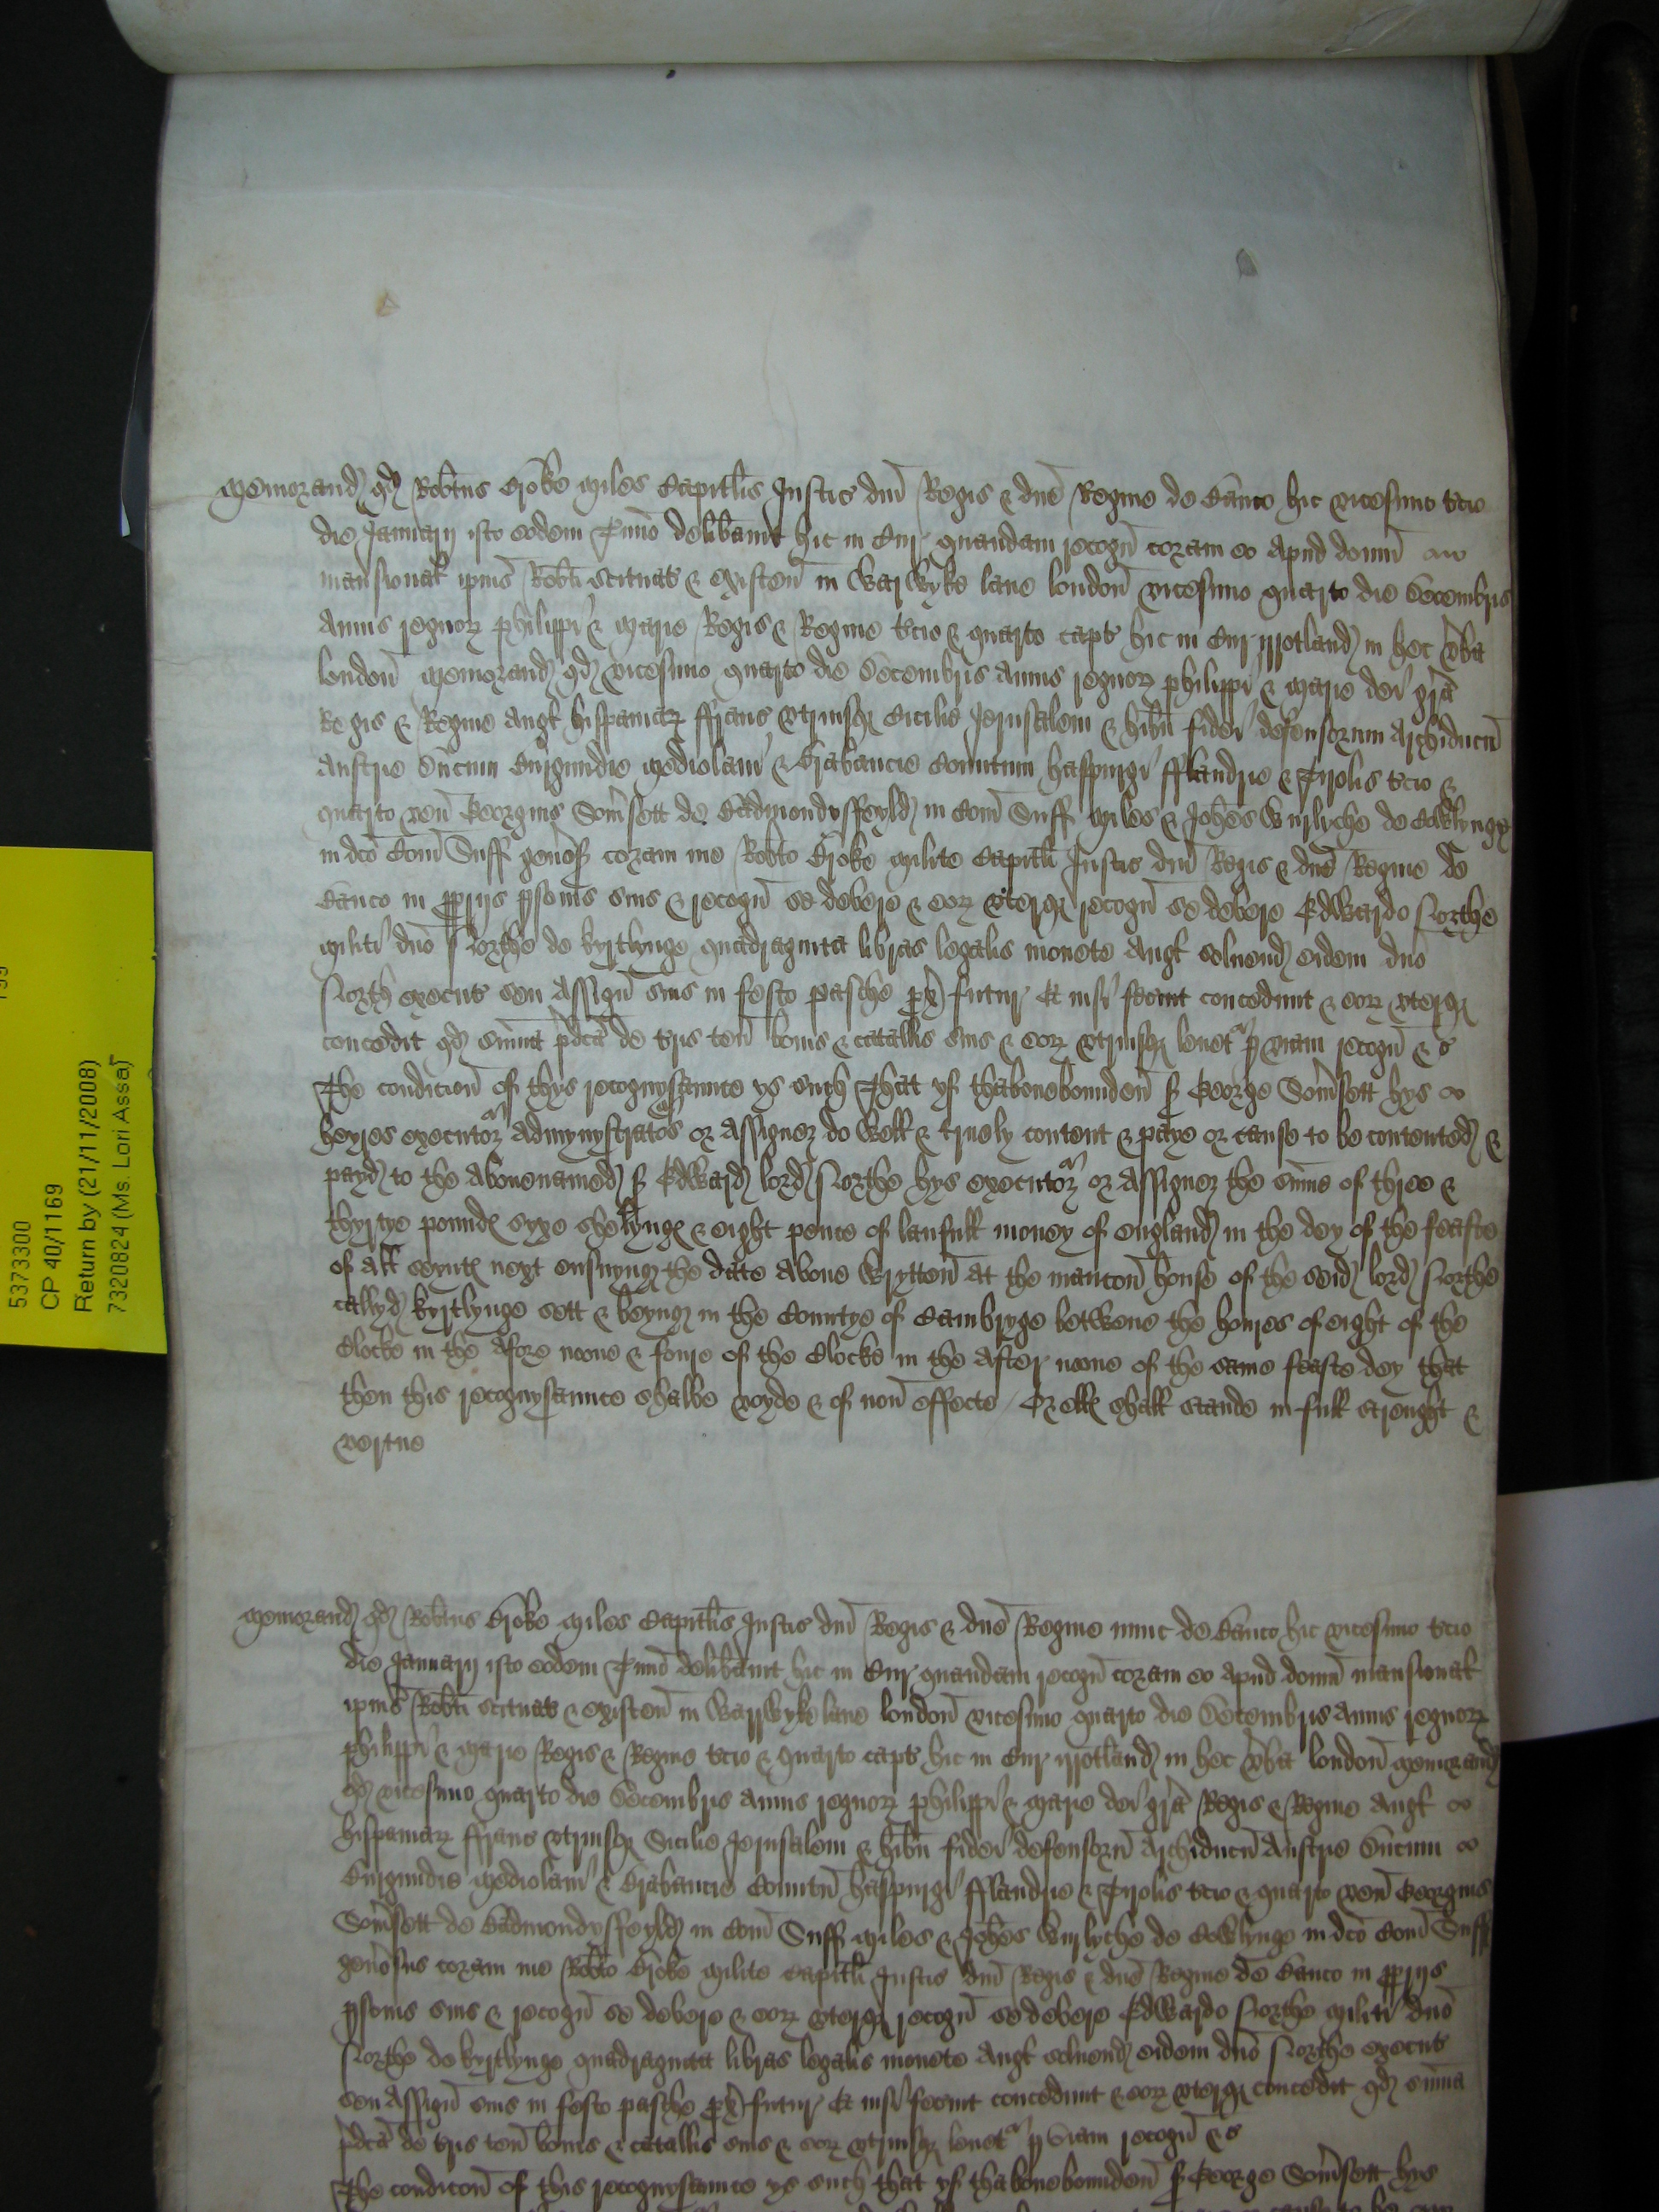 Memorand qd Robtus Broke Miles Capitlis Justic dni Regis & dne Regine de Banco hic vicesimo tcio
die Januarij isto eodem Tmino delibavit hic in Cur quandam recogn coram eo apud domu
mansional ipius Robti scituat & existen in Warwyke lane london vicesimo quarto die Decembris
Annis regnor Philippi & Marie Regis & Regine tcio & quarto capt hic in Cur irrotland in hec vba
london Memorand qd vicesimo quarto die Decembris Annis regnor Philippi & Marie dei gra
Regis & Regine Angl hispaniar ffranc utriusq Cicilie Jerusalem & hibn fidei defensorum Archiducu
Austrie Ducum Burgundie Mediolani & Brabancie Comitum haspurgi fflandrie & Tirolis tcio &
quarto ven Georgius Somsett de Badmondysfeyld in Com Suff Miles & Johes Wyrlyche de Cowlynge
in dco Com Suff genos coram me Robto Broke Milite Capitli Justic dni Regis & dne Regine de
Banco in pprijs psonis suis & recogn se debere & eor uterq recogn se debere Edwardo Northe
Militi dno Northe de kyrtlynge quadraginta libras legalis monete Angl solvend eidem dno
North execut seu Assign suis in festo pasche px futur Et nisi fecint concedunt & eor uterq
concedit qd suma pdca de tris ten bonis & catallis suis & eor utriusq levet p viam recogn &c
The condicion of thys recognysaunce ys such That yf thabovebounden sr George Somsett hys
heyres executors Admynystrators or Assignes do well & truely content & paye or cause to be contented &
payd to the Abovenamed sr Edward lord Northe hys executors or Assignes the sume of three &
thyrtye pounds syxe shelyngs & eight pence of laufull money of england in the dey of the feaste
of all seynts next ensuyng the date Above wrytten at the mancon house of the seid lord Northe
callyd kyrtlynge sett & beyng in the Countye of Cambryge betwene the houres of eight of the
Clocke in the Afore noone & foure of the Clocke in the After noone of the same feaste dey that
then this recognysaunce shalbe voyde & of non effecte Or ells shall stande in full strenght &
vertue
Memorand qd Robtus Broke Miles Capitlis Justic dni Regis & dne Regine nunc de Banco hic vicesimo tcio
die Januarij isto eodem Tmino delibavit hic in Cur quandam recogn coram eo apud domu mansional
ipius Robti scituat & existen in Warrwyke lane london vicesimo quarto die Decembris Annis regnor
Philippi & Marie Regis & Regine tcio & quarto capt hic in Cur irrotland in hec vba london Memorand
qd vicesimo quarto die Decembris Annis regnor Philippi & Marie dei gra Regis & Regine Angl
hispaniar ffranc utriusq Sicilie Jerusalem & hibn fidei defensoru Archiducu Austrie Ducum
Burgundie Mediolani & Brabancie Comitu haspurgi fflandrie & Tirolis tcio & quarto ven Georgius
Somsett de Badmondysfeyld in Com Suff Miles & Johes Wyrlyche de Cowlynge in dco Com Suff
generosus coram me Robto Broke Milite Capitli Justic dni Regis & dne Regine de Banco in pprijs
psonis suis & recogn se debere & eor uterq recogn se debere Edwardo Northe Militi dno
Northe de kyrtlynge quadraginta libras legalis monete Angl solvend eidem dno Northe execut
seu Assign suis in festo pasche px futur Et nisi fecint concedunt & eor uterq concedit qd suma
pdca de tris ten bonis & catallis suis & eor utriusq levet p viam recogn &c
The condicon of this recognysaunce ys such that yf thabovebounden sr George Somsett hys
5373300
CP 40/1169
Return by (21/11/2008)
7320824 (Ms. Lori Assaf)